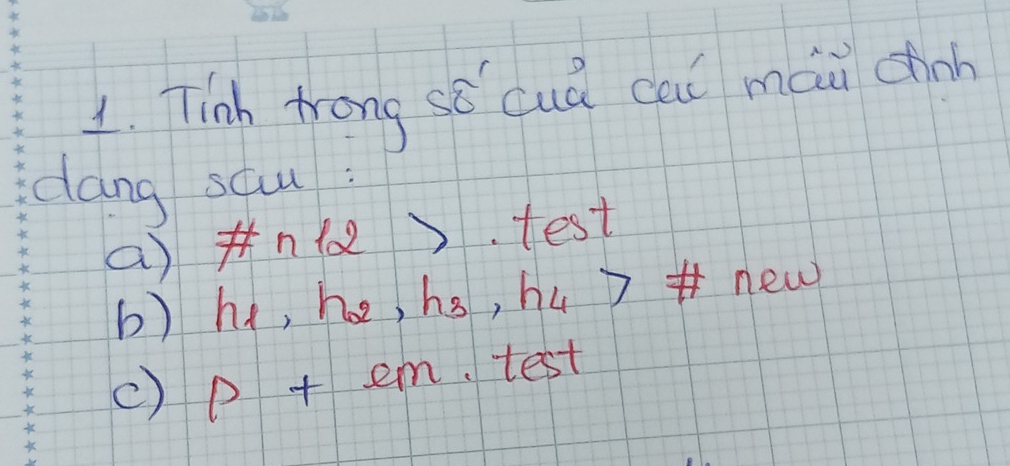 1. Tính trọng số của các mẫu định
dạng sau :
a) #n12 > .test
b) h1, h2, h3, h4 > # new
c) p + em.test